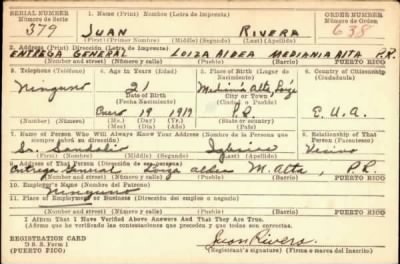 SERIAL NUMBER 1. Name (Print) Nombre (Letra de Imprenta) ORDER NUMBER
Número de Serie Número de Orden
379 JUAN RIVERA 638
(First) (Primer Nombre) (Middle) (Segundo Nombre) (Last) (Apellido)
2. Address (Print) Dirección (Letra de Imprenta)
ENTREGA GENERAL LOIZA ALDEA MEDIANIA ALTA P.R.
(Number and street) Número y calle (Town) (Pueblo) (Barrio) PUERTO RICO
3. Telephone (Teléfono) 4. Age in Years (Edad) 5. Place of Birth (Lugar de Nacimiento) 6. Country of Citizenship (Ciudadanía)
Ninguno 21 Mediania Alta, Loiza
Date of Birth City or Town
(Fecha Nacimiento) (Ciudad o Pueblo)
Enero 19 1919 P.R. E.U.A.
(Mo.) (Day) (Yr.) State or country
(Mes) (Día) (Año) (País)
7. Name of Person Who Will Always Know Your Address (Nombre de la Persona que siempre sabrá su dirección) 8. Relationship of That Person (Relación)
Sr. Iglesias Vecino
(Nombre) (Apellido)
9. Address of That Person (Dirección de esa persona)
Entrega General Loiza Aldea M. Alta, P.R.
(Number and street) Número y calle (Town) (Pueblo) (Barrio) PUERTO RICO
10. Employer's Name (Nombre del Patrono)
Ninguno
11. Place of Employment or Business (Dirección del empleo o negocio)
(Number and street) Número y calle (Town) (Pueblo) (Barrio) PUERTO RICO
I Affirm That I Have Verified Above Answers And That They Are True.
(Afirmo que he verificado las contestaciones que preceden y que todas son correctas.)
REGISTRATION CARD
D. S. S. Form 1 Juan Rivera
(PUERTO RICO) (Registrant's signature) (Firma o marca del Inscrito)